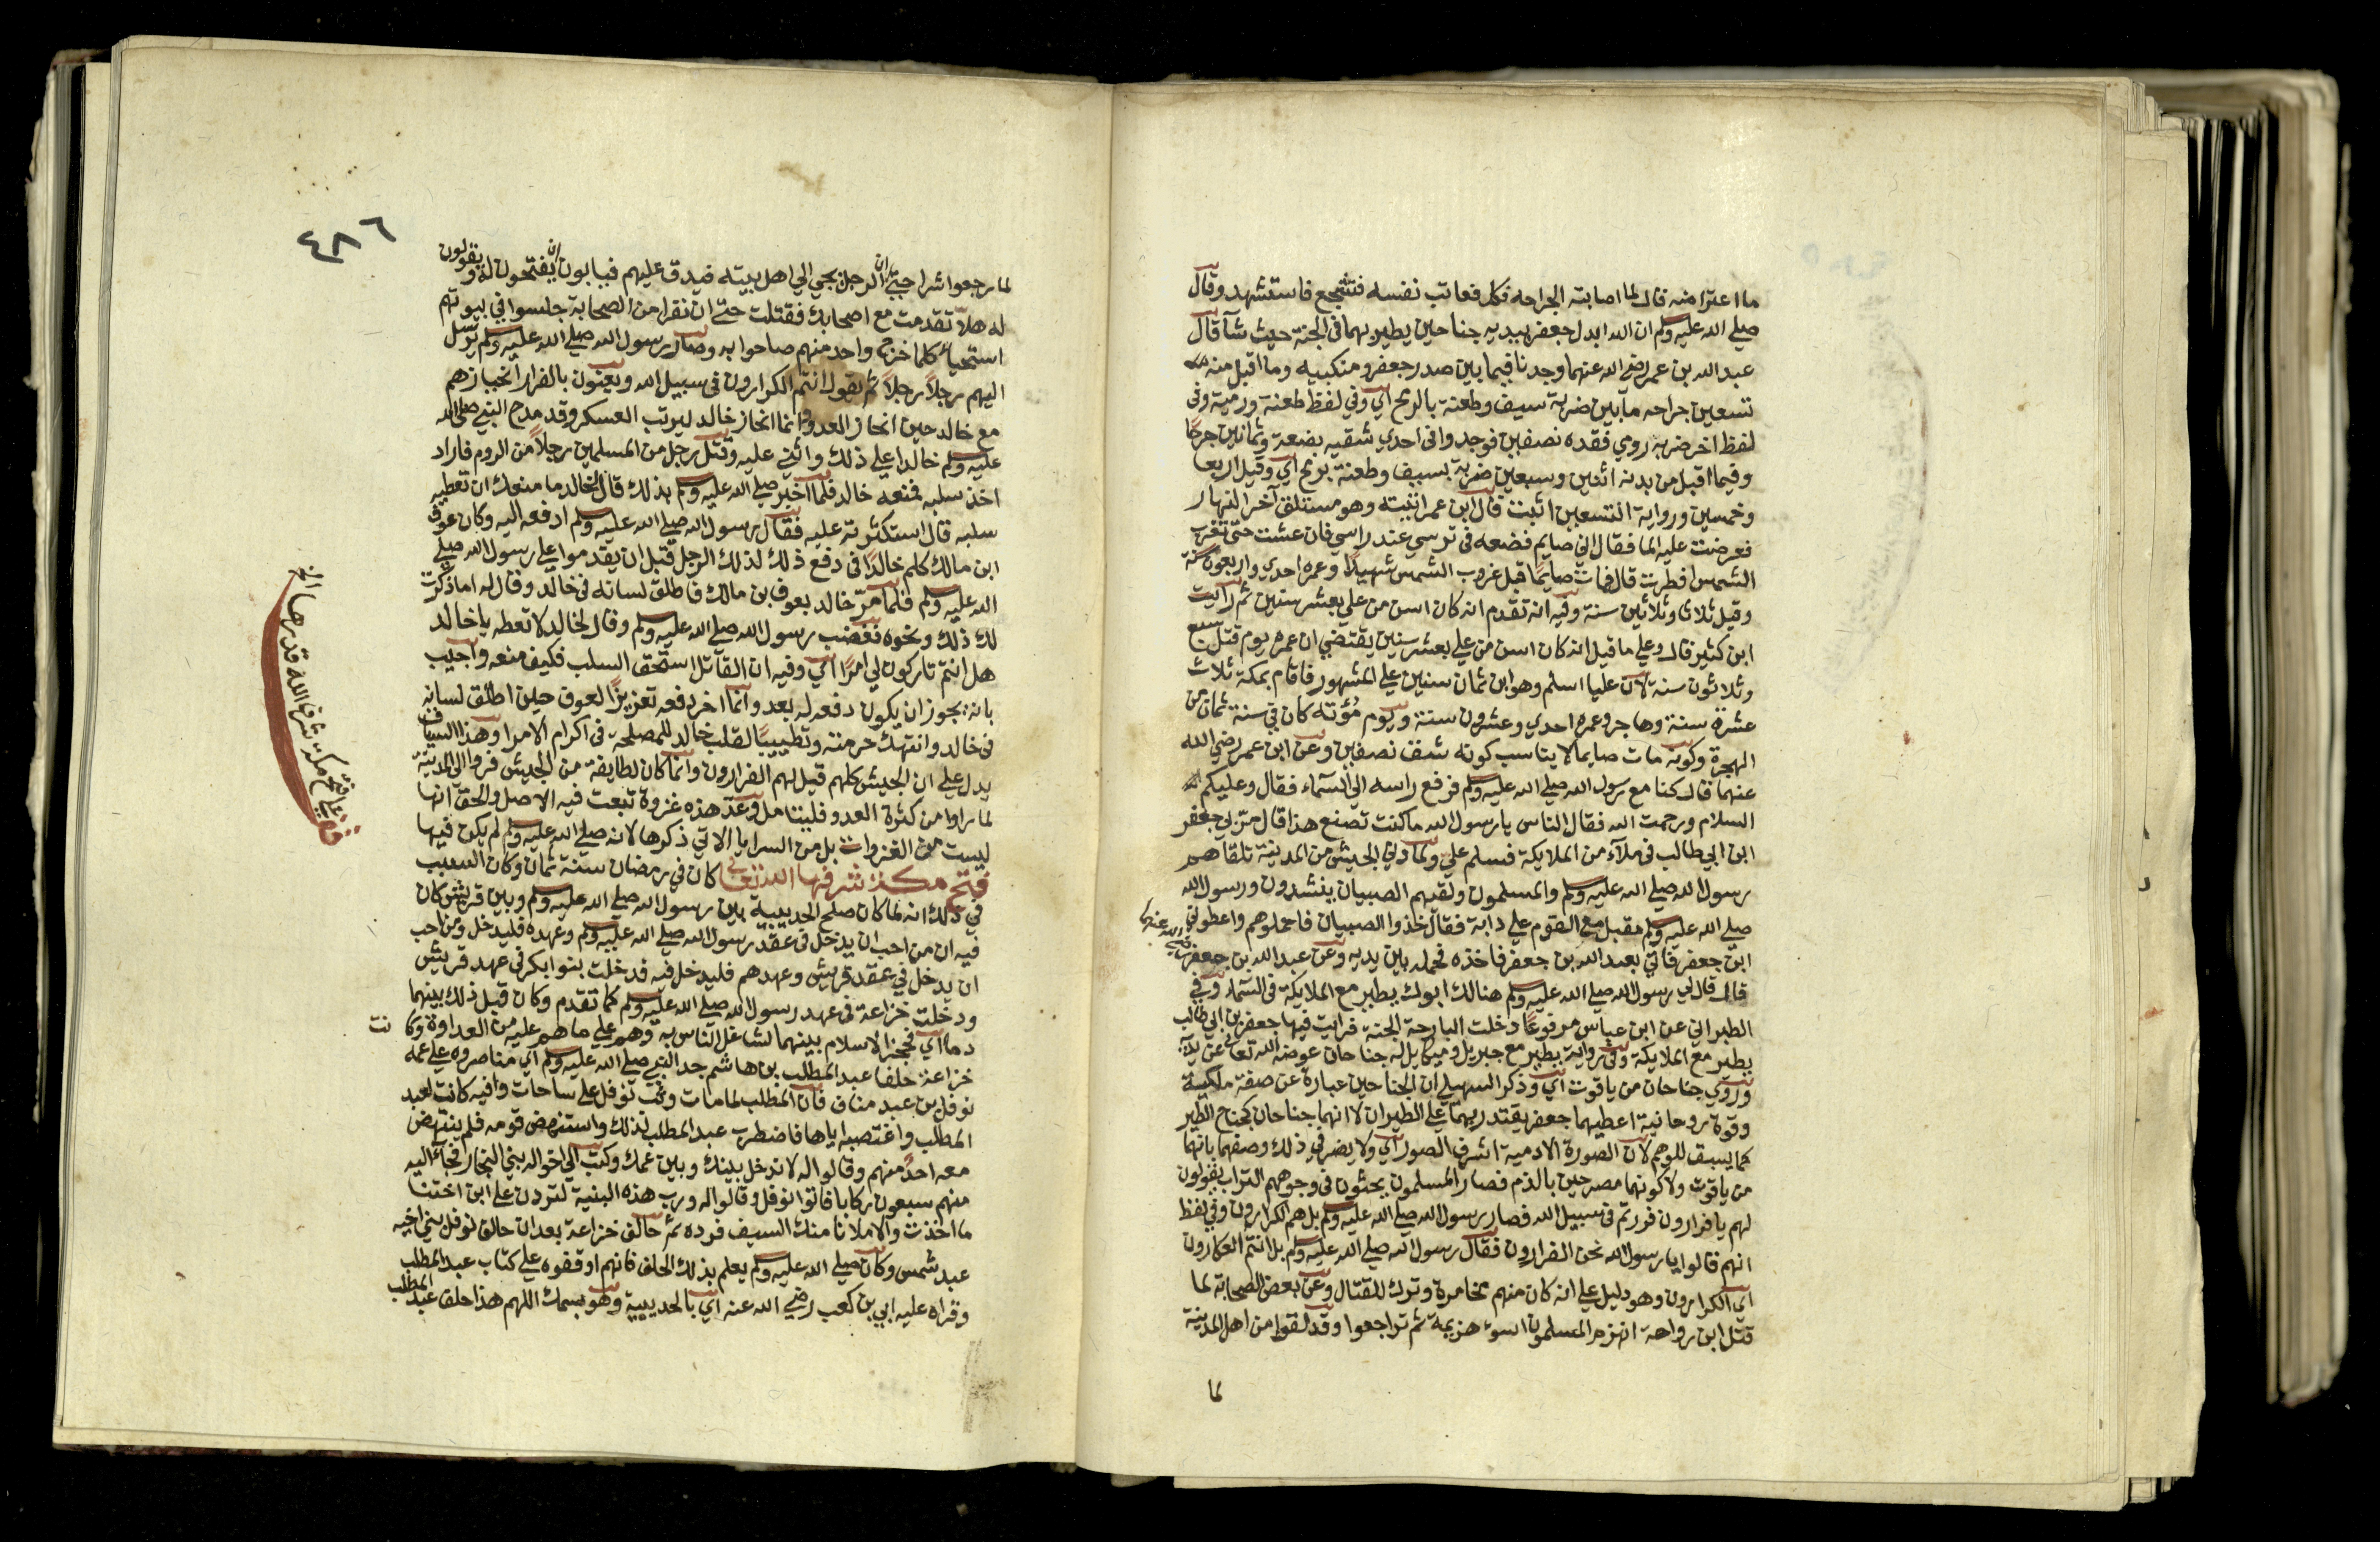 ما اعترا منه قال لما اصابته الجراحه فكل فعاتب نفسه فتشجع فاستشهد وقال
صلى الله عليه وسلم ان الله ابدل جعفر بيديه جناحين يطير بهما في الجنة حيث شآ قال
عبد الله بن عمر رضي الله عنهما وجدنا فيما بين صدر جعفر ومنكبيه وما اقبل منه
تسعين جراحه ما بين ضربة سيف وطعنة بالرمح اي وفي لفظ طعنة ورمية وفي
لفظ اخر ضربه رومي فقده نصفين فوجدوا في احدى شقيه بضعة وثمانين جرحًا
وفيما اقبل من بدنه اثنين وسبعين ضربة بسيف وطعنة برمح اي وقيل اربعا
وخمسين ورواية التسعين اثبت قال ابن عمر اتيته وهو مستلق آخر النهار
فعرضت عليه الما فقال اني صايم فضعه في ترسي عند راسي فان عشت حتى تغرب
الشمس افطرت قال فمات صايمًا قبل غروب الشمس شهيدًا وعمره احدى واربعون سنة
وقيل ثلاث وثلاثين سنة وفيه انه تقدم انه كان اسن من علي بعشر سنين ثم رايت
ابن كثير قال وعلى ما قيل انه كان اسن من علي بعشر سنين يقتضي ان عمره يوم قتل تسع
وثلاثون سنة لان عليا اسلم وهو ابن ثمان سنين على المشهور فاقام بمكة ثلاث
عشرة سنة وهاجر وعمره احدى وعشرون سنة ويوم مُؤته كان في سنة ثمان من
الهجرة وكونه مات صايما لا يناسب كونه شق نصفين وعن ابن عمر رضي الله
عنهما قال كنا مع رسول الله صلى الله عليه وسلم فرفع راسه الى السماء فقال وعليكم
السلام ورحمت الله فقال الناس يا رسول الله ما كنت تصنع هذا قال مرّ بي جعفر
ابن ابي طالب في ملآء من الملايكة فسلم علي ولما دني الجيش من المدينة تلقاهم
رسول الله صلى الله عليه وسلم والمسلمون ولقيهم الصبيان ينشدون ورسول الله
صلى الله عليه وسلم مقبل مع القوم على دابة فقال خذوا الصبيان فاحملوهم واعطوني
ابن جعفر فاتي بعبد الله بن جعفر فاخذه فحمله بين يديه وعن عبد الله بن جعفر رضي الله عنهما
قال قال لي رسول الله صلى الله عليه وسلم هنالك ابوك يطير مع الملايكة في السماء وفي
الطبراني عن ابن عباس مرفوعًا دخلت البارحة الجنة فرايت فيها جعفر بن ابي طالب
يطير مع الملايكة وفي رواية يطير مع جبريل وميكايل له جناحان عوضه الله تعالى عن يديه
وروي جناحان من ياقوت اي وذكر السهيلي ان الجناحين عبارة عن صفة ملكية
وقوة روحانية اعطيهما جعفر يقتدر بهما على الطيران لا انهما جناحان كجناح الطير
كما يسبق للوهم لان الصورة الادمية اشرف الصور اي ولا يضر في ذلك وصفهما بانهما
من ياقوت ولا كونهما مضرجين بالدم فصار المسلمون يحثون في وجوههم التراب يقولون
لهم يا فرارون فررتم في سبيل الله فصار رسول الله صلى الله عليه وسلم بل هم الكرارون وفي لفظ
انهم قالوا يا رسول الله نحن الفرارون فقال رسول الله صلى الله عليه وسلم بل انتم العكارون
اي الكرارون وهو دليل على انه كان منهم مخامرة وترك للقتال وعن بعض الصحابة لما
قتل ابن رواحة انهزم المسلمون اسوء هزيمة ثم تراجعوا وقد لقوا من اهل المدينة
لما
٤٨٦
لما رجعوا شرا حتى ان الرجل يجي الى اهل بيته فيدق عليهم فيابون ان يفتحون له ويقولون
له هلا تقدمت مع اصحابك فقتلت حتى ان نفرا من الصحابة جلسوا في بيوتهم
استحياءً كلما خرج واحد منهم صاحوا به وصار رسول الله صلى الله عليه وسلم يرسل
اليهم رجلاً رجلاً ثم يقول انتم الكرارون في سبيل الله ويعنون بالفرار انحيازهم
مع خالد حين انحاز العدو وانما انحاز خالد ليرتب العسكر وقد مدح النبي صلى الله
عليه وسلم خالدا على ذلك واثنى عليه وقتل رجل من المسلمين رجلاً من الروم فاراد
اخذ سلبه فمنعه خالد فلما اخبر صلى الله عليه وسلم بذلك قال لخالد ما منعك ان تعطيه
سلبه قال استكثرته عليه فقال رسول الله صلى الله عليه وسلم ادفعه اليه وكان عوف
ابن مالك كلم خالدًا في دفع ذلك لذلك الرجل قبل ان يقدموا على رسول الله صلى
الله عليه وسلم فلما مرّ خالد بعوف بن مالك فاطلق لسانه في خالد وقال له اما ذكرت
لك ذلك ونحوه فغضب رسول الله صلى الله عليه وسلم وقال لخالد لا تعطه يا خالد
هل انتم تاركون لي امرًا اي وفيه ان القاتل استحق السلب فكيف منعه واجيب
بانه يجوز ان يكون دفعه له بعد وانما اخر دفعه تعزيرًا لعوف حين اطلق لسانه
في خالد وانتهك حرمته وتطييبًا لقلب خالد للمصلحة في اكرام الامرا وهذا السياق
يدل على ان الجيش كلهم قيل لهم الفرارون وانما كان لطايفة من الجيش فروا الى المدينة
لما راوا من كثرة العدو فليتامل وعدّ هذه غزوة تبعت فيه الاصل والحق انها
ليست من الغزوات بل من السرايا الاتي ذكرها لانه صلى الله عليه وسلم لم يكن فيها
فتح مكة شرفها الله تعالى كان في رمضان سنة ثمان وكان السبب
في ذلك انه لما كان صلح الحديبية بين رسول الله صلى الله عليه وسلم وبين قريش كان
فيه ان من احب ان يدخل في عقد رسول الله صلى الله عليه وسلم وعهده فليدخل ومن احب
ان يدخل في عقد قريش وعهدهم فليدخل فيه فدخلت بنو ابكر في عهد قريش
ودخلت خزاعة في عهد رسول الله صلى الله عليه وسلم كما تقدم وكان قبل ذلك بينهما
دما اي فحجز الاسلام بينهما لتشاغل الناس به وهم على ما هم عليه من العداوة وكانت
خزاعة حلفا عبد المطلب بن هاشم جد النبي صلى الله عليه وسلم اي مناصروه على عمه
نوفل بن عبد مناف فان المطلب لما مات وثب نوفل على ساحات وافنية كانت لعبد
المطلب واغتصبه اياها فاضطرب عبد المطلب لذلك واستنهض قومه فلم ينتهض
معه احدٌ منهم وقالوا له لا ندخل بينك وبين عمك وكتب الى اخواله بني النجار فجآء اليه
منهم سبعون ركابا فاتوا نوفل وقالوا له ورب هذه البنية لتردن على ابن اختنا
ما اخذت والا ملانا منك السيف فرده ثم حالف خزاعة بعد ان حالف نوفل بني اخيه
عبد شمس وكان صلى الله عليه وسلم يعلم بذلك الحلف فانهم اوقفوه على كتاب عبد المطلب
وقراه عليه ابي بن كعب رضي الله عنه اي بالحديبية وهو بسمك اللهم هذا حلف عبد المطلب
فتح مكة شرف الله قدرها الخ